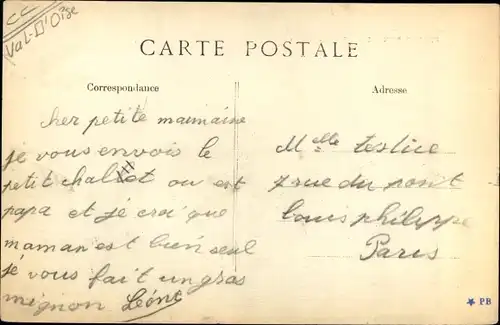 CC
Val-D'Oise
CARTE POSTALE
Correspondance
Adresse
cher petite mamaine
je vous envois le
petit chalet ou est
papa et je croi que
maman est bien seul
je vous fait un gras
mignon Léone
Melle testice
7 rue du pont
louis philippe
Paris
PB